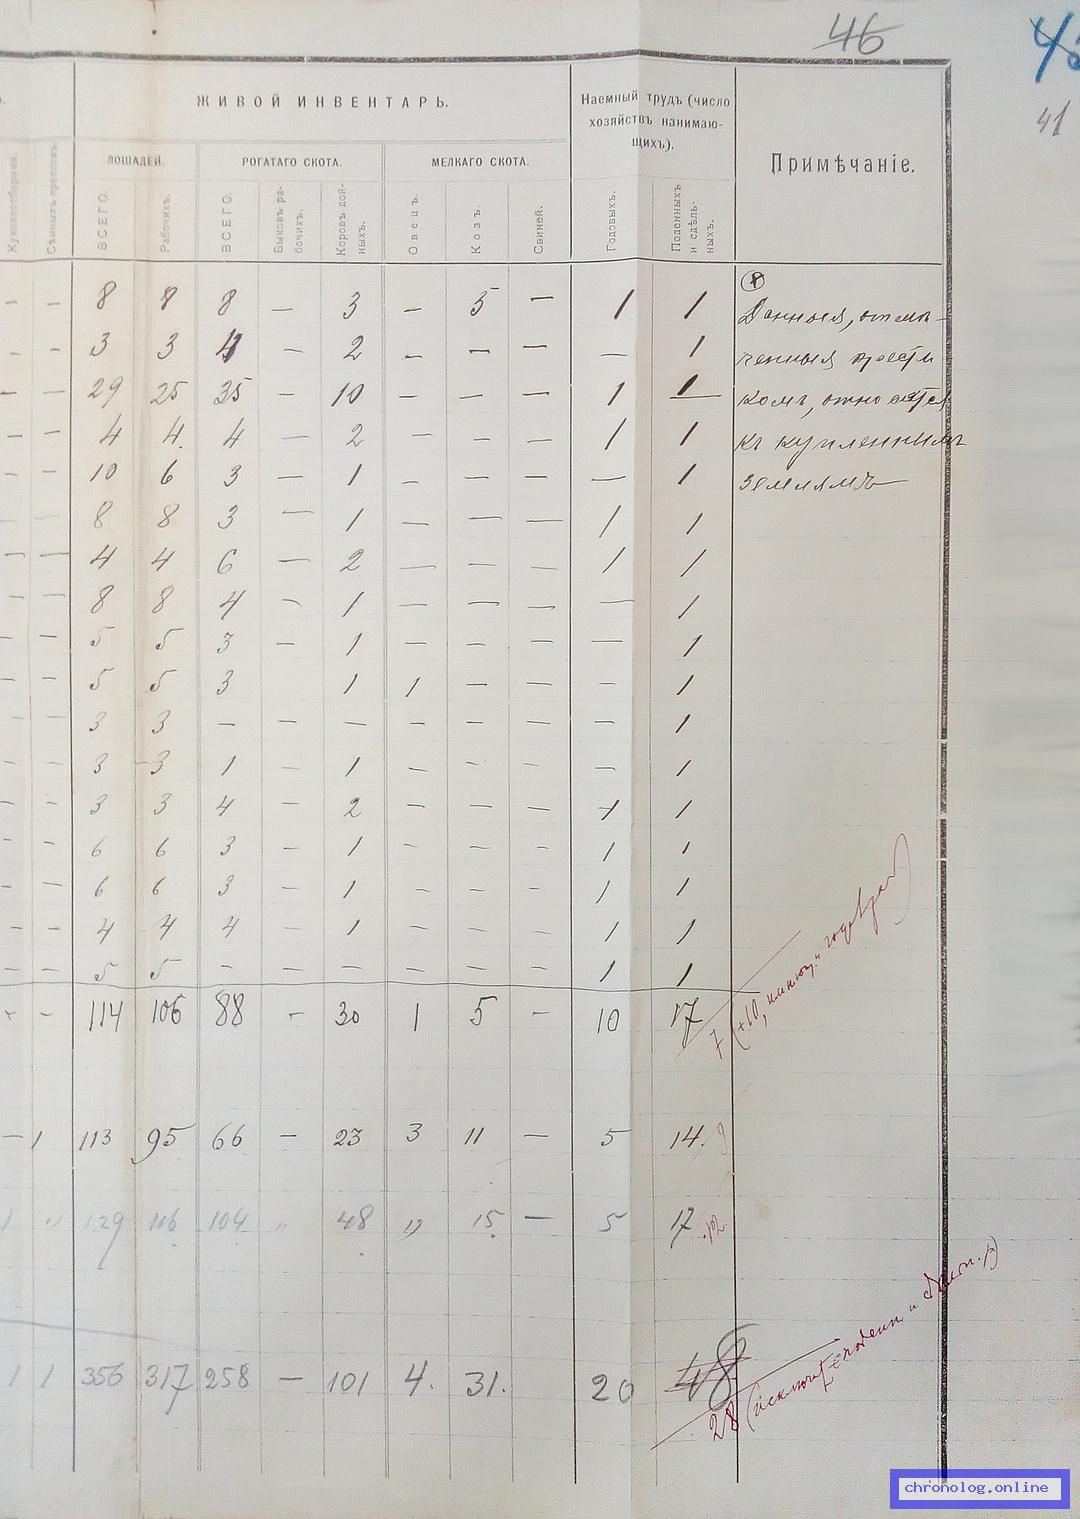 46
43
41
ЖИВОЙ ИНВЕНТАРЬ.
Наемный трудъ (число
хозяйствъ нанимаю-
щихъ).
Примѣчаніе.
ЛОШАДЕЙ.
РОГАТАГО СКОТА.
МЕЛКАГО СКОТА.
Сѣнныхъ прессовъ.
ВСЕГО.
Рабочихъ.
ВСЕГО.
Быковъ ра-
бочихъ.
Коровъ дой-
ныхъ.
Овецъ.
Козъ.
Свиней.
Годовыхъ.
Поденныхъ
и сдѣль-
ныхъ.
— — 8 8 8 — 3 — 5 — 1 1
Данныя, отмѣ-
— — 3 3 4 — 2 — — — — 1
ченныя крести
— — 29 25 35 — 10 — — — 1 1
комъ, относятся
— — 4 4. 4 — 2 — — — 1 1
къ купленнымъ
— — 10 6 3 — 1 — — — — 1
землямъ
— — 8 8 3 — 1 — — — 1 1
— — 4 4 6 — 2 — — — 1 1
— — 8 8 4 — 1 — — — — 1
— — 5 5 3 — 1 — — — — 1
— — 5 5 3 1 1 — — — 1
— — 3 3 — — — — — — — 1
— — 3 3 1 — 1 — — — — 1
— — 3 3 4 — 2 — — — 1 1
— — 6 6 3 — 1 — — — 1 1
— — 6 6 3 — 1 — — — 1 1
— — 4 4 4 — 1 — — — 1 1
— — 5 5 — — — — — — 1 1
— — 114 106 88 — 30 1 5 — 10 17
7 (+10,
— 1 113 95 66 — 23 3 11 — 5 14. 9
1 " 129 116 104 " 48 " 15. — 5 17 .12.
1 1 356 317 258 — 101 4. 31. 20 48
28
chronolog.online